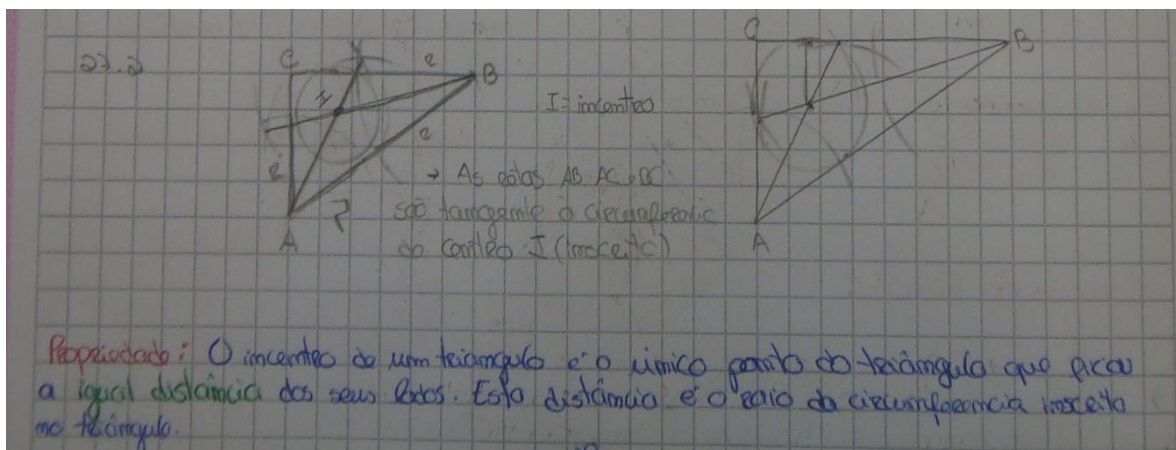 27.2
C
B
I
A
I = incentro
→ As retas AB AC e BC
são tangente à
do centro I
C
B
A
Propriedade: O incentro de um triângulo é o único ponto do triângulo que fica
a igual distância dos seus lados. Esta distância é o raio da circunferencia inscrita
no triângulo.